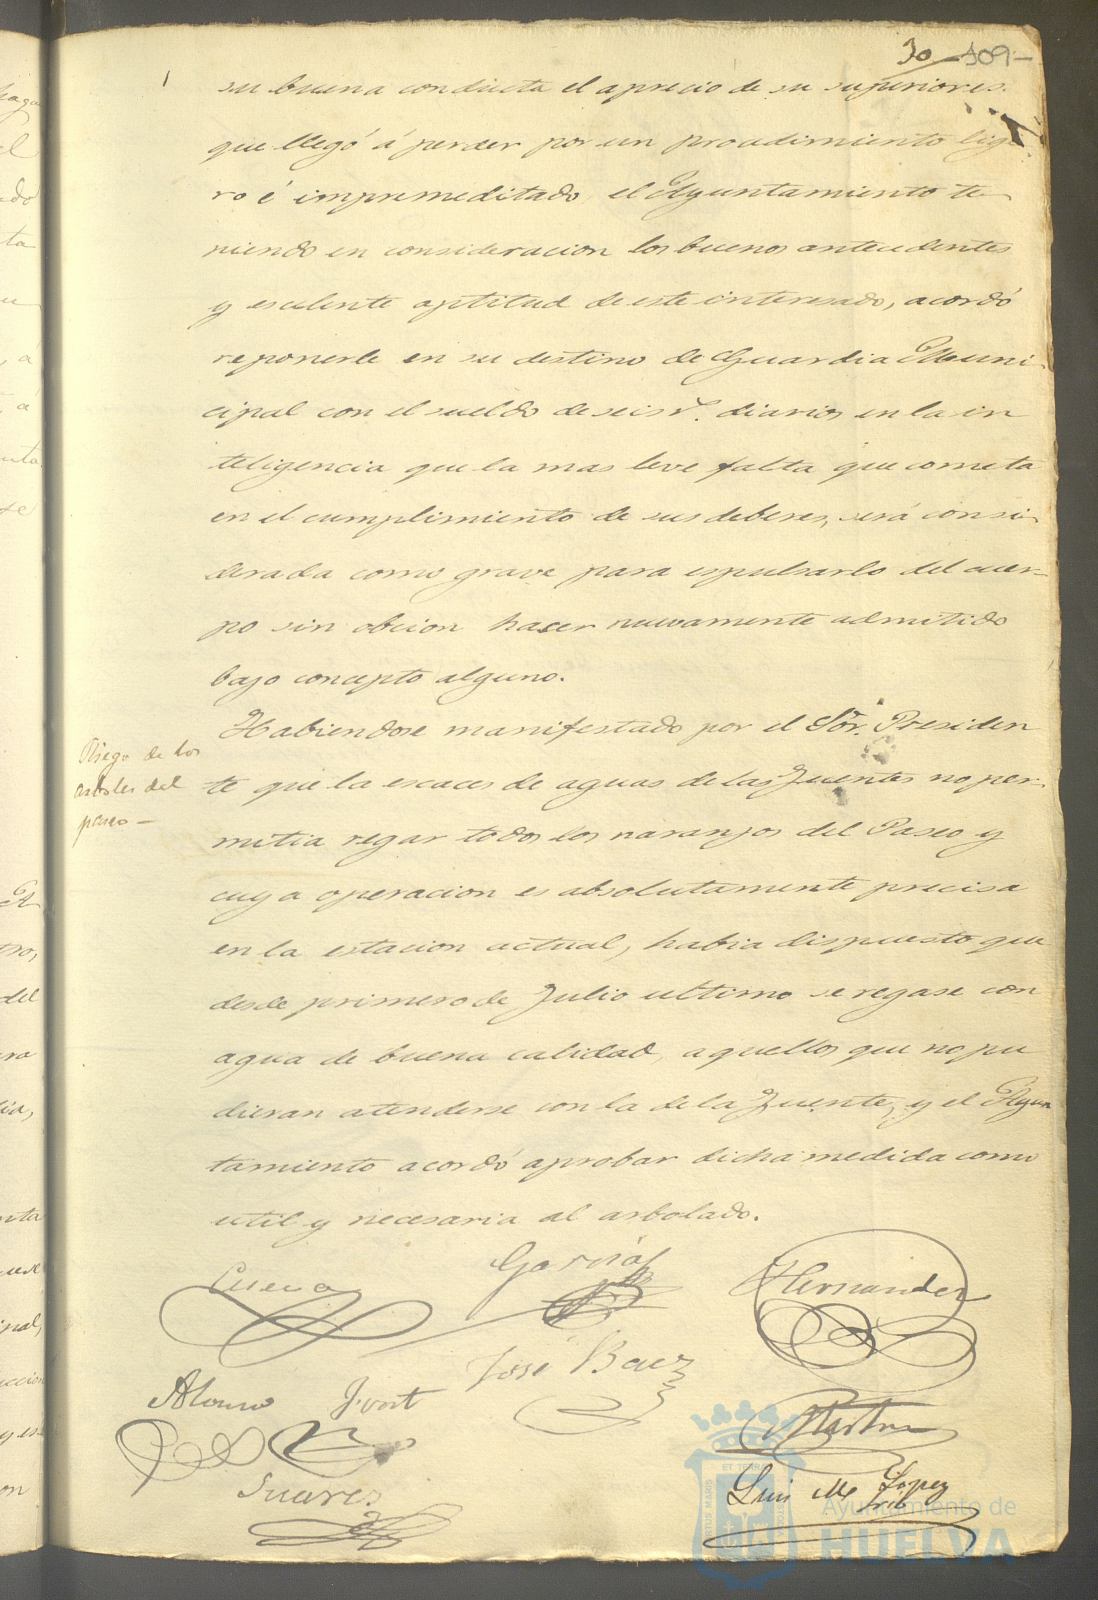 30 509-
su buena conducta el aprecio de su superiores
que llegó á perder por un procedimiento lige
ro é impremeditado, el Ayuntamiento te
niendo en consideracion los buenos antecedentes
y escelente aptitud de este interesado, acordó
reponerle en su destino de Guardia Muni
cipal con el sueldo de seis r.s diarios en la in
teligencia que la mas leve falta que cometa
en el cumplimiento de sus deberes, será consi
derada como grave para espulsarlo del cuer-
po sin obcion haser nuevamente admitido
bajo concepto alguno.
Habiendose manifestado por el Sor. Presiden
Riego de los
arboles del
paseo-
te que la escaces de aguas de las Fuentes no per-
mitia regar todos los naranjos del Paseo y
cuya operacion es absolutamente precisa
en la estacion actual, habia dispuesto que
desde primero de Julio ultimo se regase con
agua de buena calidad, aquellos que no pu
dieran atenderse con la de la Fuente, y el Ayun
tamiento acordó aprobar dicha medida como
util y necesaria al arbolado.
Cueva Garcia Hernandez
José Baez
Alonso
Suares
Luis M Lopez
ET TERRAE
Ayuntamiento de
HUELVA